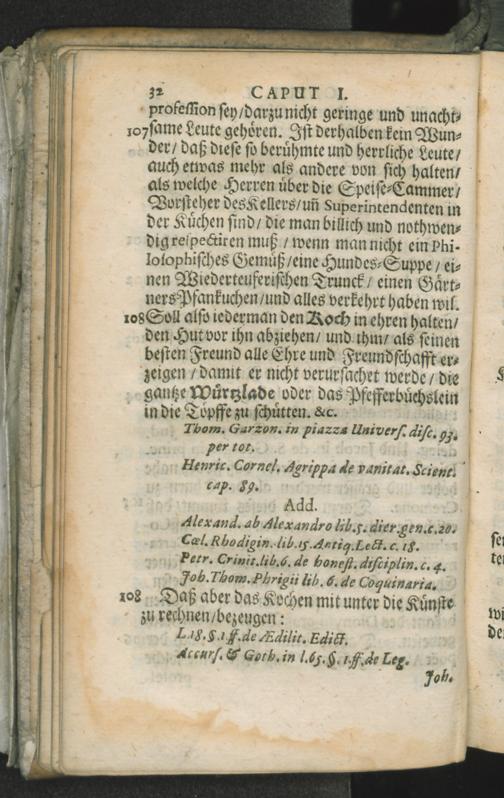 32 CAPUT I.
profession sey/darzu nicht geringe und unacht-
107 same Leute gehören. Ist derhalben kein Wun-
der/ daß diese so berühmte und herrliche Leute/
auch etwas mehr als andere von sich halten/
als welche Herren über die Speise-Cammer/
Vorsteher des Kellers/ uñ Superintendenten in
der Küchen sind/ die man billich und nothwen-
dig respectiren muß/ wenn man nicht ein Phi-
losophisches Gemüß/ eine Hundes-Suppe/ ei-
nen Wiederteuferischen Trunck/ einen Gärt-
ners Pfankuchen/ und alles verkehrt haben wil.
108 Soll also iederman den Koch in ehren halten/
den Hut vor ihn abziehen/ und ihm/ als seinen
besten Freund alle Ehre und Freundschafft er-
zeigen/ damit er nicht verursachet werde/ die
gantze Würtzlade oder das Pfefferbüchslein
in die Töpffe zu schütten. &c.
Thom. Garzon. in piazza Univers. disc. 93.
per tot.
Henric. Cornel. Agrippa de vanitat. Scient.
cap. 89.
Add.
Alexand. ab Alexandro lib. 5. dier. gen. c. 20.
Cœl. Rhodigin. lib. 15. Antiq. Lect. c. 18.
Petr. Crinit. lib. 6. de honest. disciplin. c. 4.
Joh. Thom. Phrigii lib. 6. de Coquinaria.
108 Daß aber das Kochen mit unter die Künste
zu rechnen/ bezeugen:
L. 18. §. 1. ff. de Ædilit. Edict.
Accurs. & Goth. in l. 65. §. 1. ff. de Leg.
Joh.